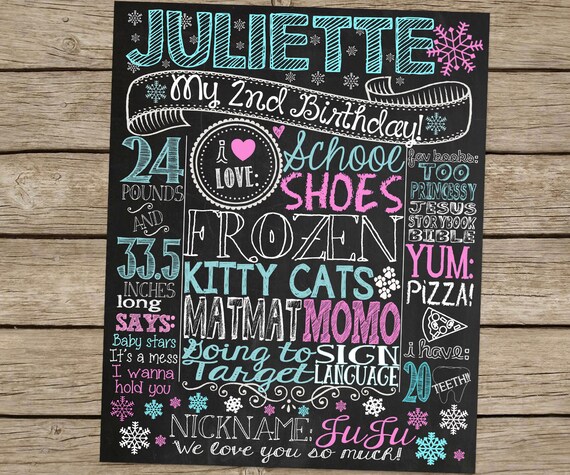 JULIETTE
My 2nd Birthday!
24
POUNDS
AND
33.5
INCHES
long
SAYS:
Baby stars
It's a mess
I wanna
hold you
i
LOVE:
School
SHOES
FROZEN
KITTY CATS
MATMAT MOMO
Going to
Target
SIGN
LANGUAGE
fav books:
TOO
PRINCESSY
JESUS
STORYBOOK
BIBLE
YUM:
PIZZA!
i have:
20 TEETH!!
NICKNAME: JuJu
We love you so much!